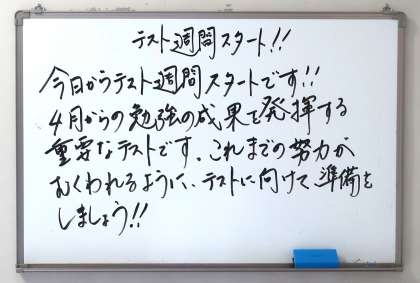 テスト週間スタート!!
今日からテスト週間スタートです!!
4月からの勉強の成果を発揮する
重要なテストです。これまでの努力が
むくわれるように、テストに向けて準備を
しましょう!!